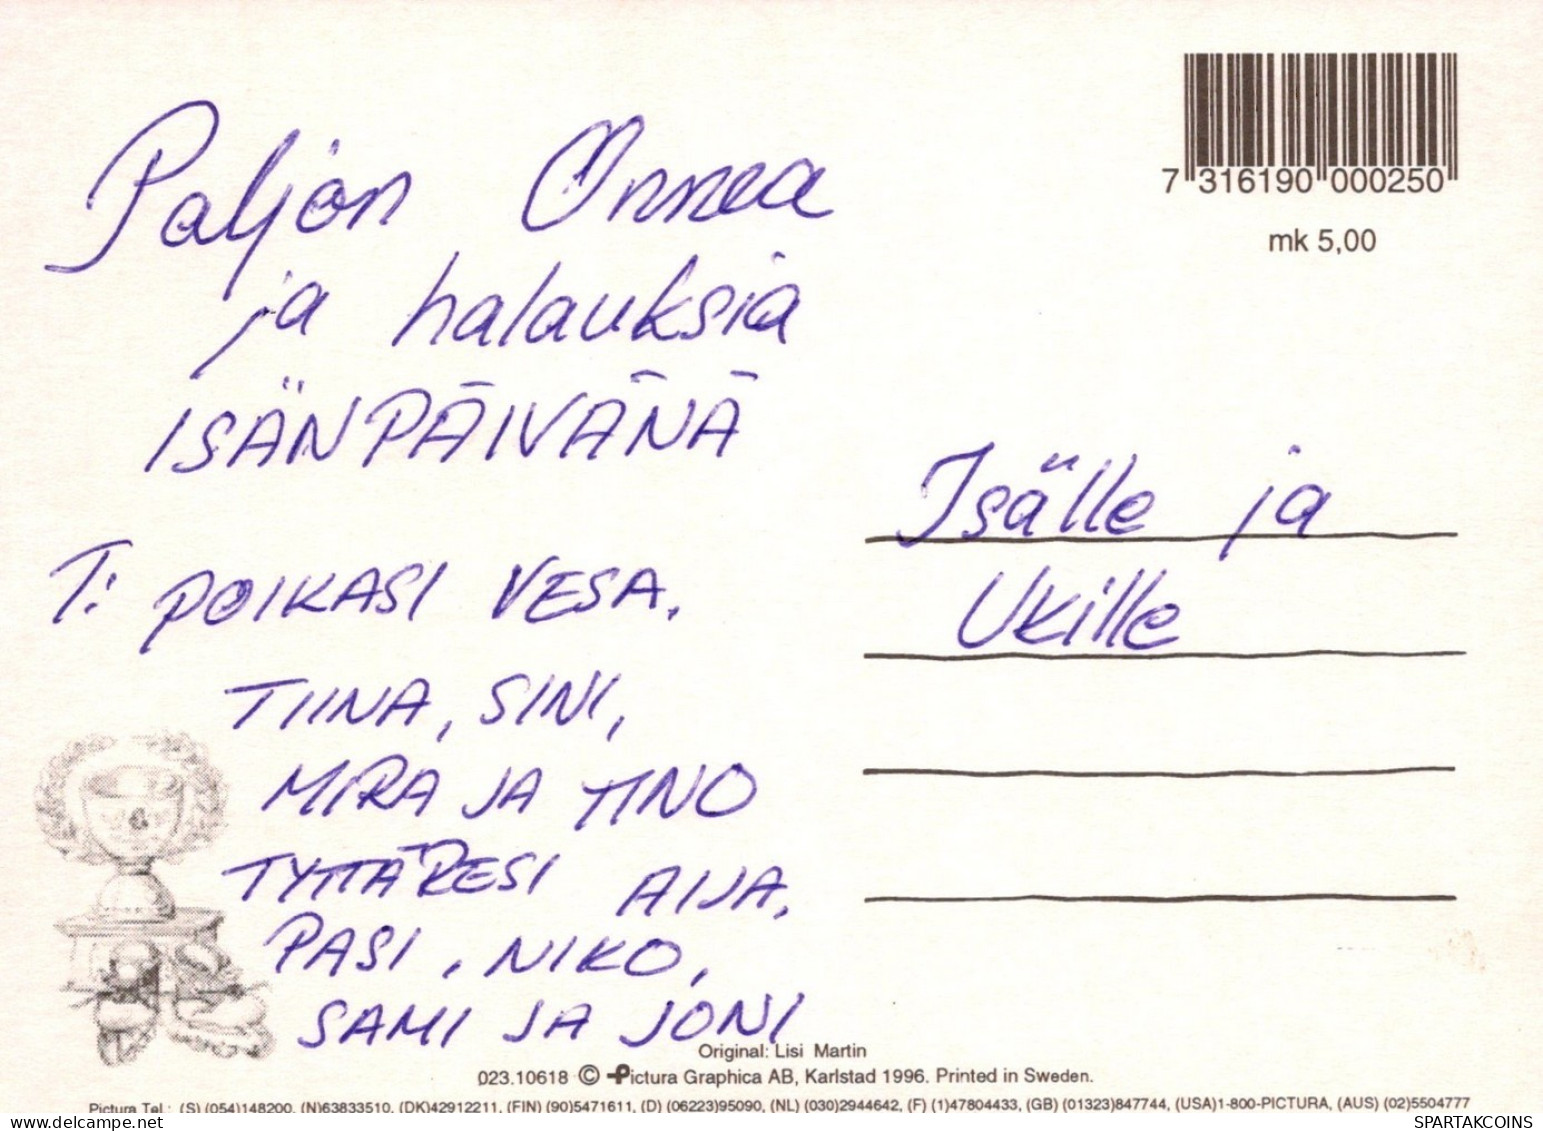 7 316190 000250
mk 5,00
Paljon Onnea
ja halauksia
ISÄNPÄIVÄNÄ
T: POIKASI VESA,
TIINA, SINI,
MIRA JA TINO
TYTTÄRESI AIJA,
PASI, NIKO,
SAMI JA JONI
Isälle ja
Ukille
Original: Lisi Martin
023.10618 © Pictura Graphica AB, Karlstad 1996. Printed in Sweden.
Pictura Tel.: (S) (054)148200, (N)63833510, (DK)42912211, (FIN) (90)5471611, (D) (06223)95090, (NL) (030)2944642, (F) (1)47804433, (GB) (01323)847744, (USA)1-800-PICTURA, (AUS) (02)5504777
delcampe.net
SPARTAKCOINS